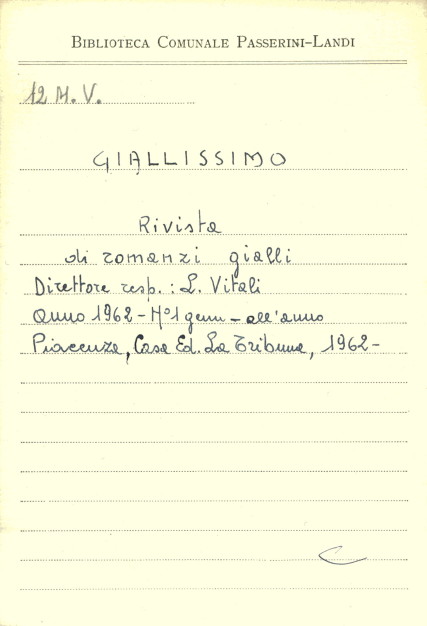 BIBLIOTECA COMUNALE PASSERINI-LANDI
12 M. V.
GIALLISSIMO
Rivista
di romanzi gialli
Direttore resp.: L. Vitali
Anno 1962 - N° 1 genn - all'anno
Piacenza, Casa Ed. La Tribuna, 1962 -